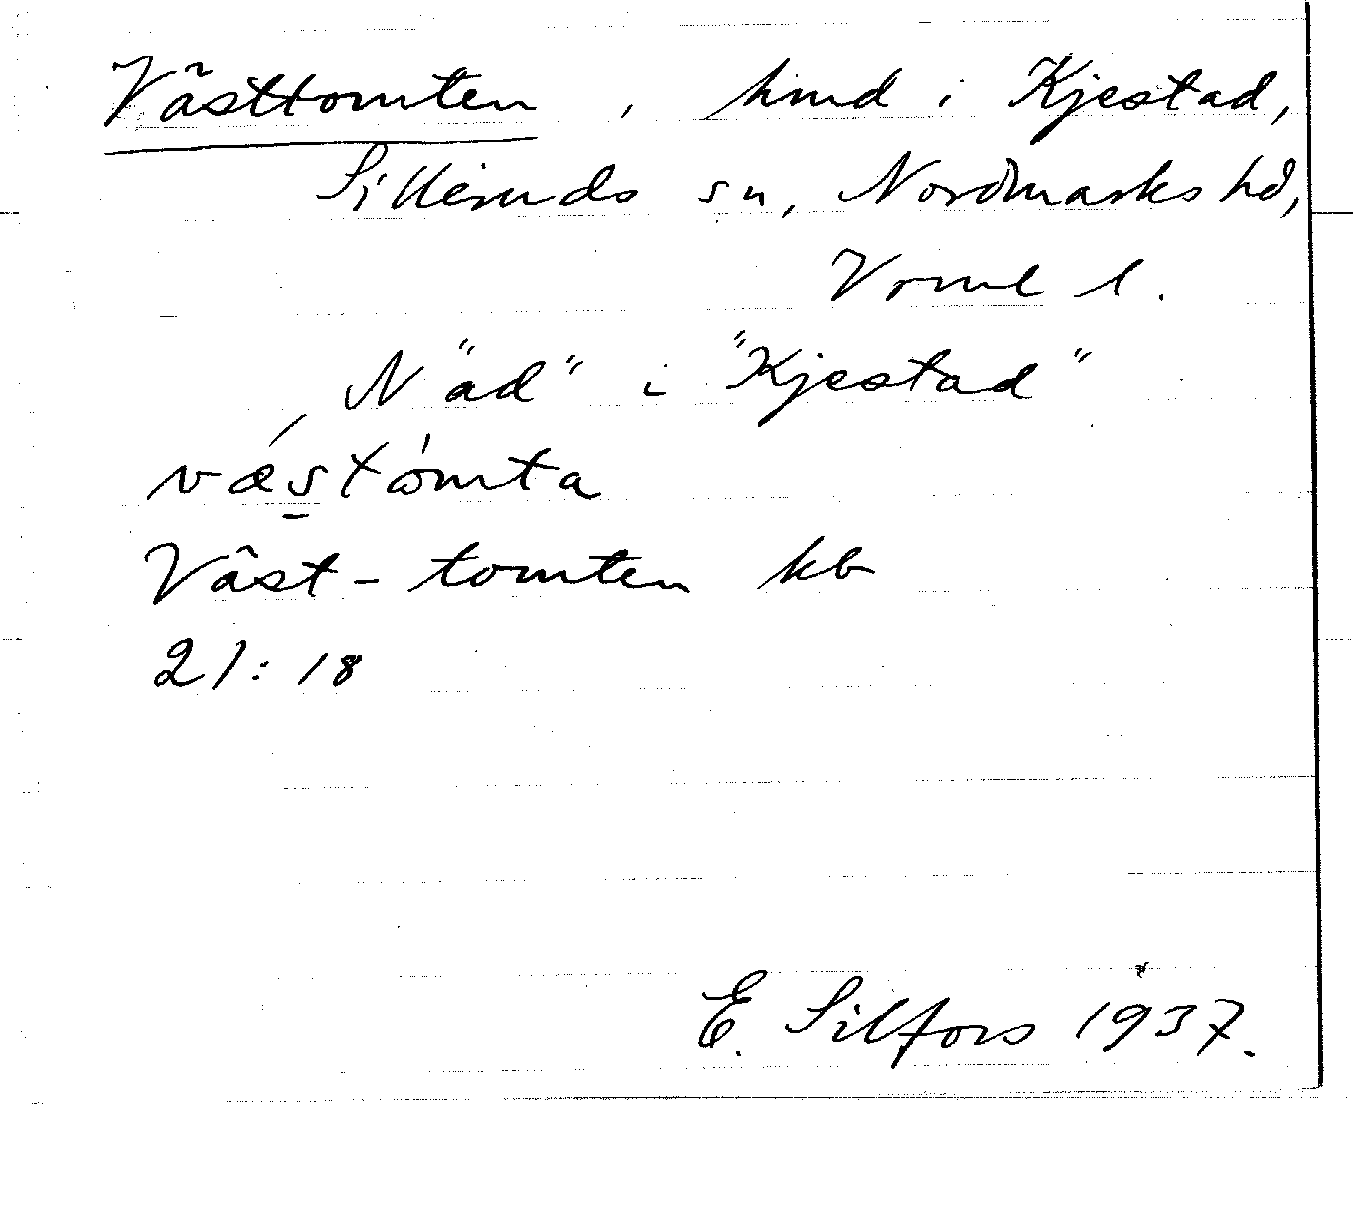 Västtomten, hmd i Kjestad,
Silleruds sn, Nordmarks hd,
Vrml l.
N "äd" i "Kjestad"
væstómta
Väst-tomten kb
21:18
E. Silfors 1937.